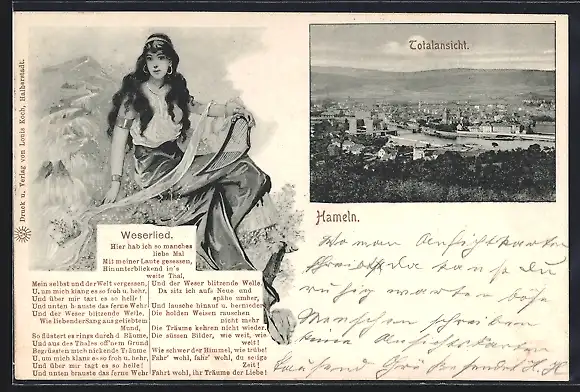 Druck u. Verlag von Louis Koch, Halberstadt.
Totalansicht.
Hameln.
Weserlied.
Hier hab ich so manches
liebe Mal
Mit meiner Laute gesessen,
Hinunterblickend in's
weite Thal,
Mein selbst und der Welt vergessen,
U. um mich klang es so froh u. hehr,
Und über mir tagt es so helle!
Und unten brauste das ferne Wehr
Und der Weser blitzende Welle.
Wie liebender Sang aus geliebtem
Mund,
So flüstert es rings durch d. Bäume,
Und aus des Thales off'nem Grund
Begrüssten mich nickende Träume
U. um mich klang es so froh u. hehr,
Und über mir tagt es so helle!
Und unten brauste das ferne Wehr
Und der Weser blitzende Welle.
Da sitz ich aufs Neue und
spähe umher,
Und lausche hinauf u. hernieder
Die holden Weisen rauschen
nicht mehr
Die Träume kehren nicht wieder.
Die süssen Bilder, wie weit, wie
weit!
Wie schwer der Himmel, wie trübe!
Fahr' wohl, fahr' wohl, du selige
Zeit!
Fahrt wohl, ihr Träume der Liebe!
Wo man Ansichtkarten
schreibt da kannst du
ruhig warten böse
Menschen schreiben
keine Ansichtskarten
Tausend Grüße